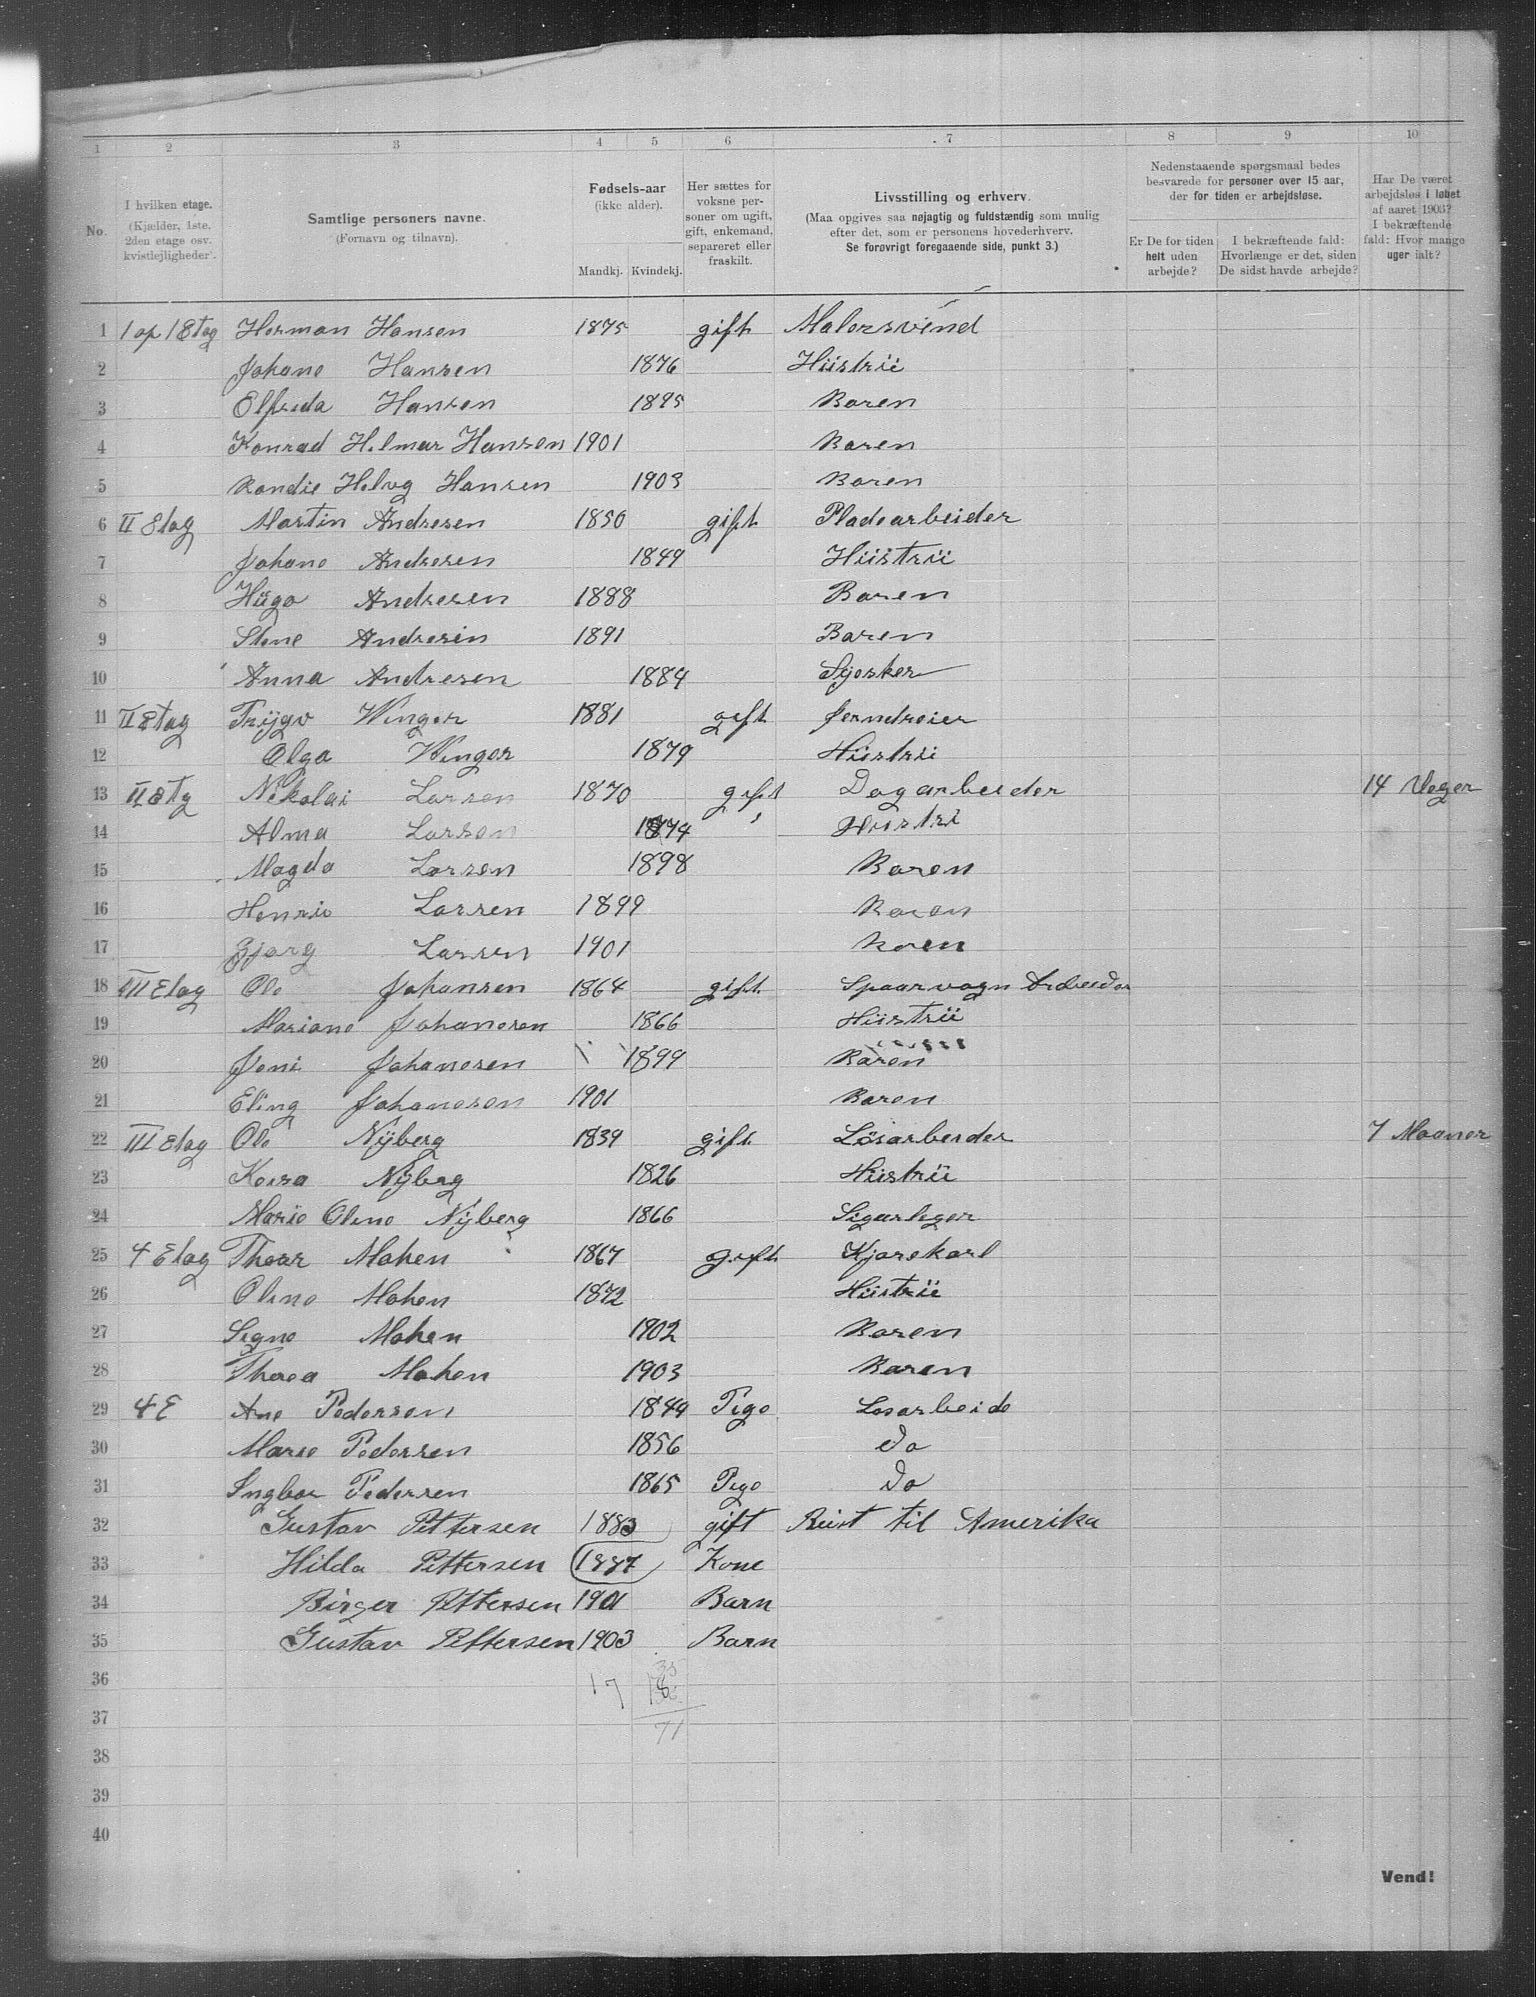 1 2 3 4 5 6 7 8 9 10
No.
I hvilken etage. (Kjælder, 1ste, 2den etage osv. kvistlejligheder).
Samtlige personers navne. (Fornavn og tilnavn).
Fødsels-aar (ikke alder). Mandkj. Kvindekj.
Her sættes for voksne personer om ugift, gift, enkemand, separeret eller fraskilt.
Livsstilling og erhverv. (Maa opgives saa nøjagtig og fuldstændig som mulig efter det, som er personens hovederhverv. Se forøvrigt foregaaende side, punkt 3.)
Nedenstaaende spørgsmaal bedes besvarede for personer over 15 aar, der for tiden er arbejdsløse.
Er De for tiden helt uden arbejde?
I bekræftende fald: Hvorlænge er det, siden De sidst havde arbejde?
Har De været arbejdsløs i løbet af aaret 1903? I bekræftende fald: Hvor mange uger ialt?
1 1 op 1 Etag Herman Hansen 1875 gift Malersvend
2 Johane Hansen 1876 Hüstrü
3 Elfrida Hansen 1895 Baren
4 Konrad Hilmar Hansen 1901 Baren
5 Randie Helvg Hansen 1903 Baren
6 II Etag Martin Andresen 1850 gift Pladearbeider
7 Johane Andresen 1849 Hüstrü
8 Hügo Andresen 1888 Baren
9 Stene Andresin 1891 Baren
10 Anna Andresen 1884 Syesker
11 II Etag Trÿgv Winger 1881 gift Jerndreier
12 Olga Winger 1879 Hüstrü
13 II Etg Nikolai Larsen 1870 gift Dagarbeider 14 Ueger
14 Alma Larsen 1874 Hüstri
15 Magda Larsen 1898 Baren
16 Henrie Larsen 1899 Baren
17 Bjarg Larsen 1901 Baren
18 III Etag Ole Johansen 1864 gift Spaarvagn Arbeider
19 Mariane Johanesen 1866 Hüstrü
20 Joni Johanesen 1899 Baren
21 Eling Johanesen 1901 Baren
22 III Etag Ole Nÿberg 1839 gift Lösarbeider 7 Maaner
23 Kaisa Nÿberg 1826 Hüstrü
24 Marie Oline Nÿberg 1866 Sigarleger
25 4 Etag Thoar Mohen 1867 gift Kjørekarl
26 Oline Mohen 1872 Hüstrü
27 Signe Mohen 1902 Baren
28 Thorea Mohen 1903 Baren
29 4 E Ane Pedersen 1849 Pige Løsarbeide
30 Marie Pedersen 1856 do
31 Ingbor Pedersen 1865 Pige do
32 Gustav Pettersen 1883 gift Reist til Amerika
33 Hilda Pettersen 1887 Kone
34 Birger Pettersen 1901 Barn
35 Gustav Pettersen 1903 Barn
36 17 18
37 71
38
39
40
Vend!